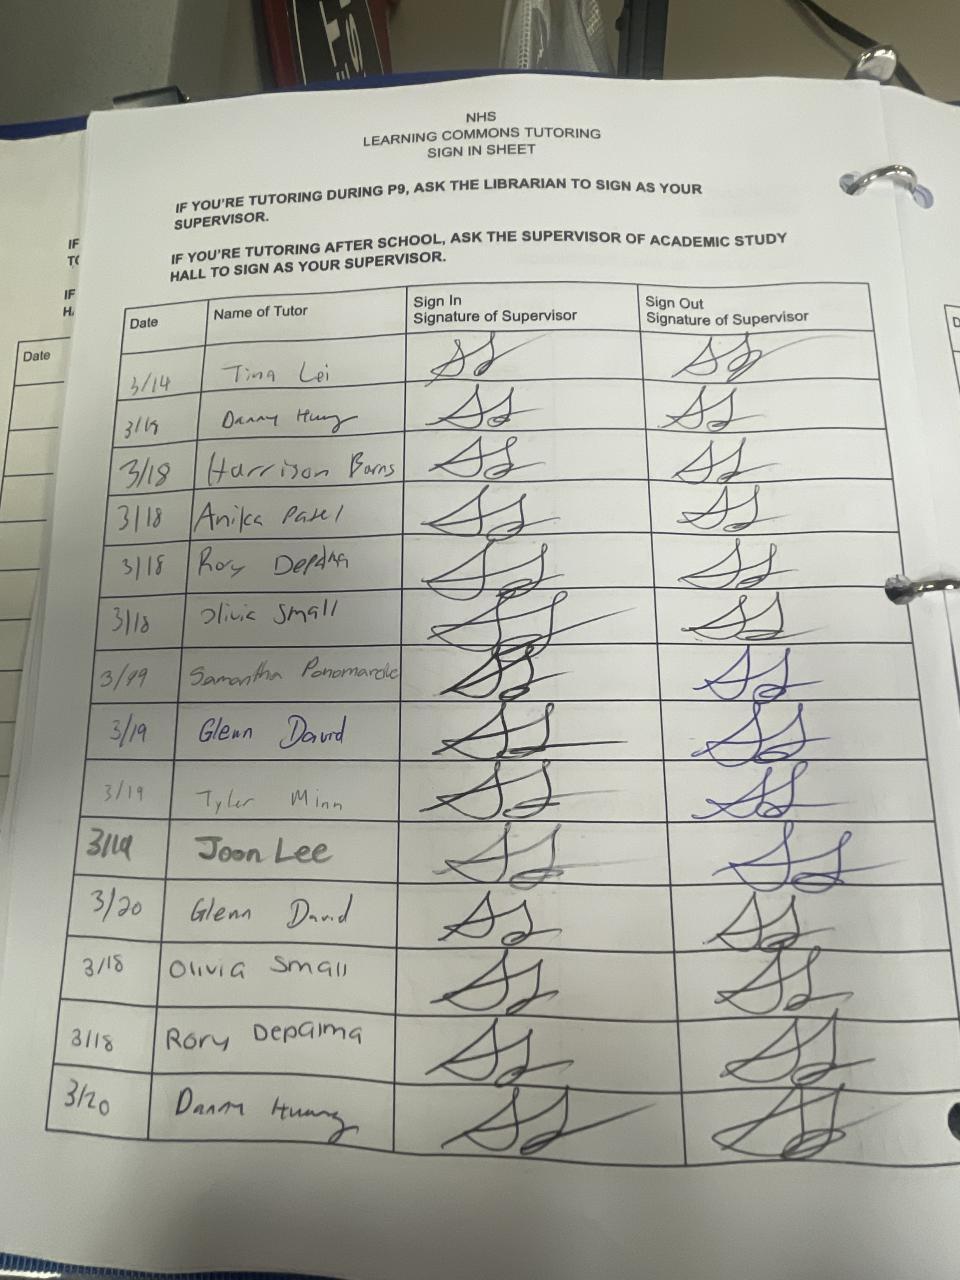 NHS
LEARNING COMMONS TUTORING
SIGN IN SHEET
IF YOU'RE TUTORING DURING P9, ASK THE LIBRARIAN TO SIGN AS YOUR
SUPERVISOR.
IF YOU'RE TUTORING AFTER SCHOOL, ASK THE SUPERVISOR OF ACADEMIC STUDY
HALL TO SIGN AS YOUR SUPERVISOR.
Date Name of Tutor Sign In Signature of Supervisor Sign Out Signature of Supervisor
3/14 Tina Lei
Danny
3/18 Harrison Barns
3/18 Anika Patel
3/18 Rory
3/18 Olivia Small
Samantha
3/19 Glenn David
3/19 Tyler Minn
3/19 Joon Lee
3/20 Glenn David
3/18 Olivia Small
3/18 Rory Depalma
3/20 Danny Huang
IF
TO
IF
H
Date
D